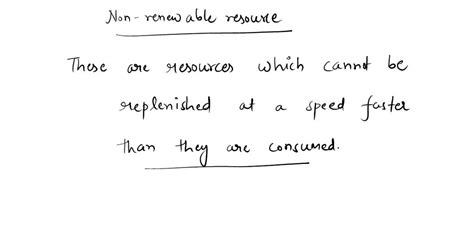 Non-renewable resource
These are resources which cannot be
replenished at a speed faster
than they are consumed.